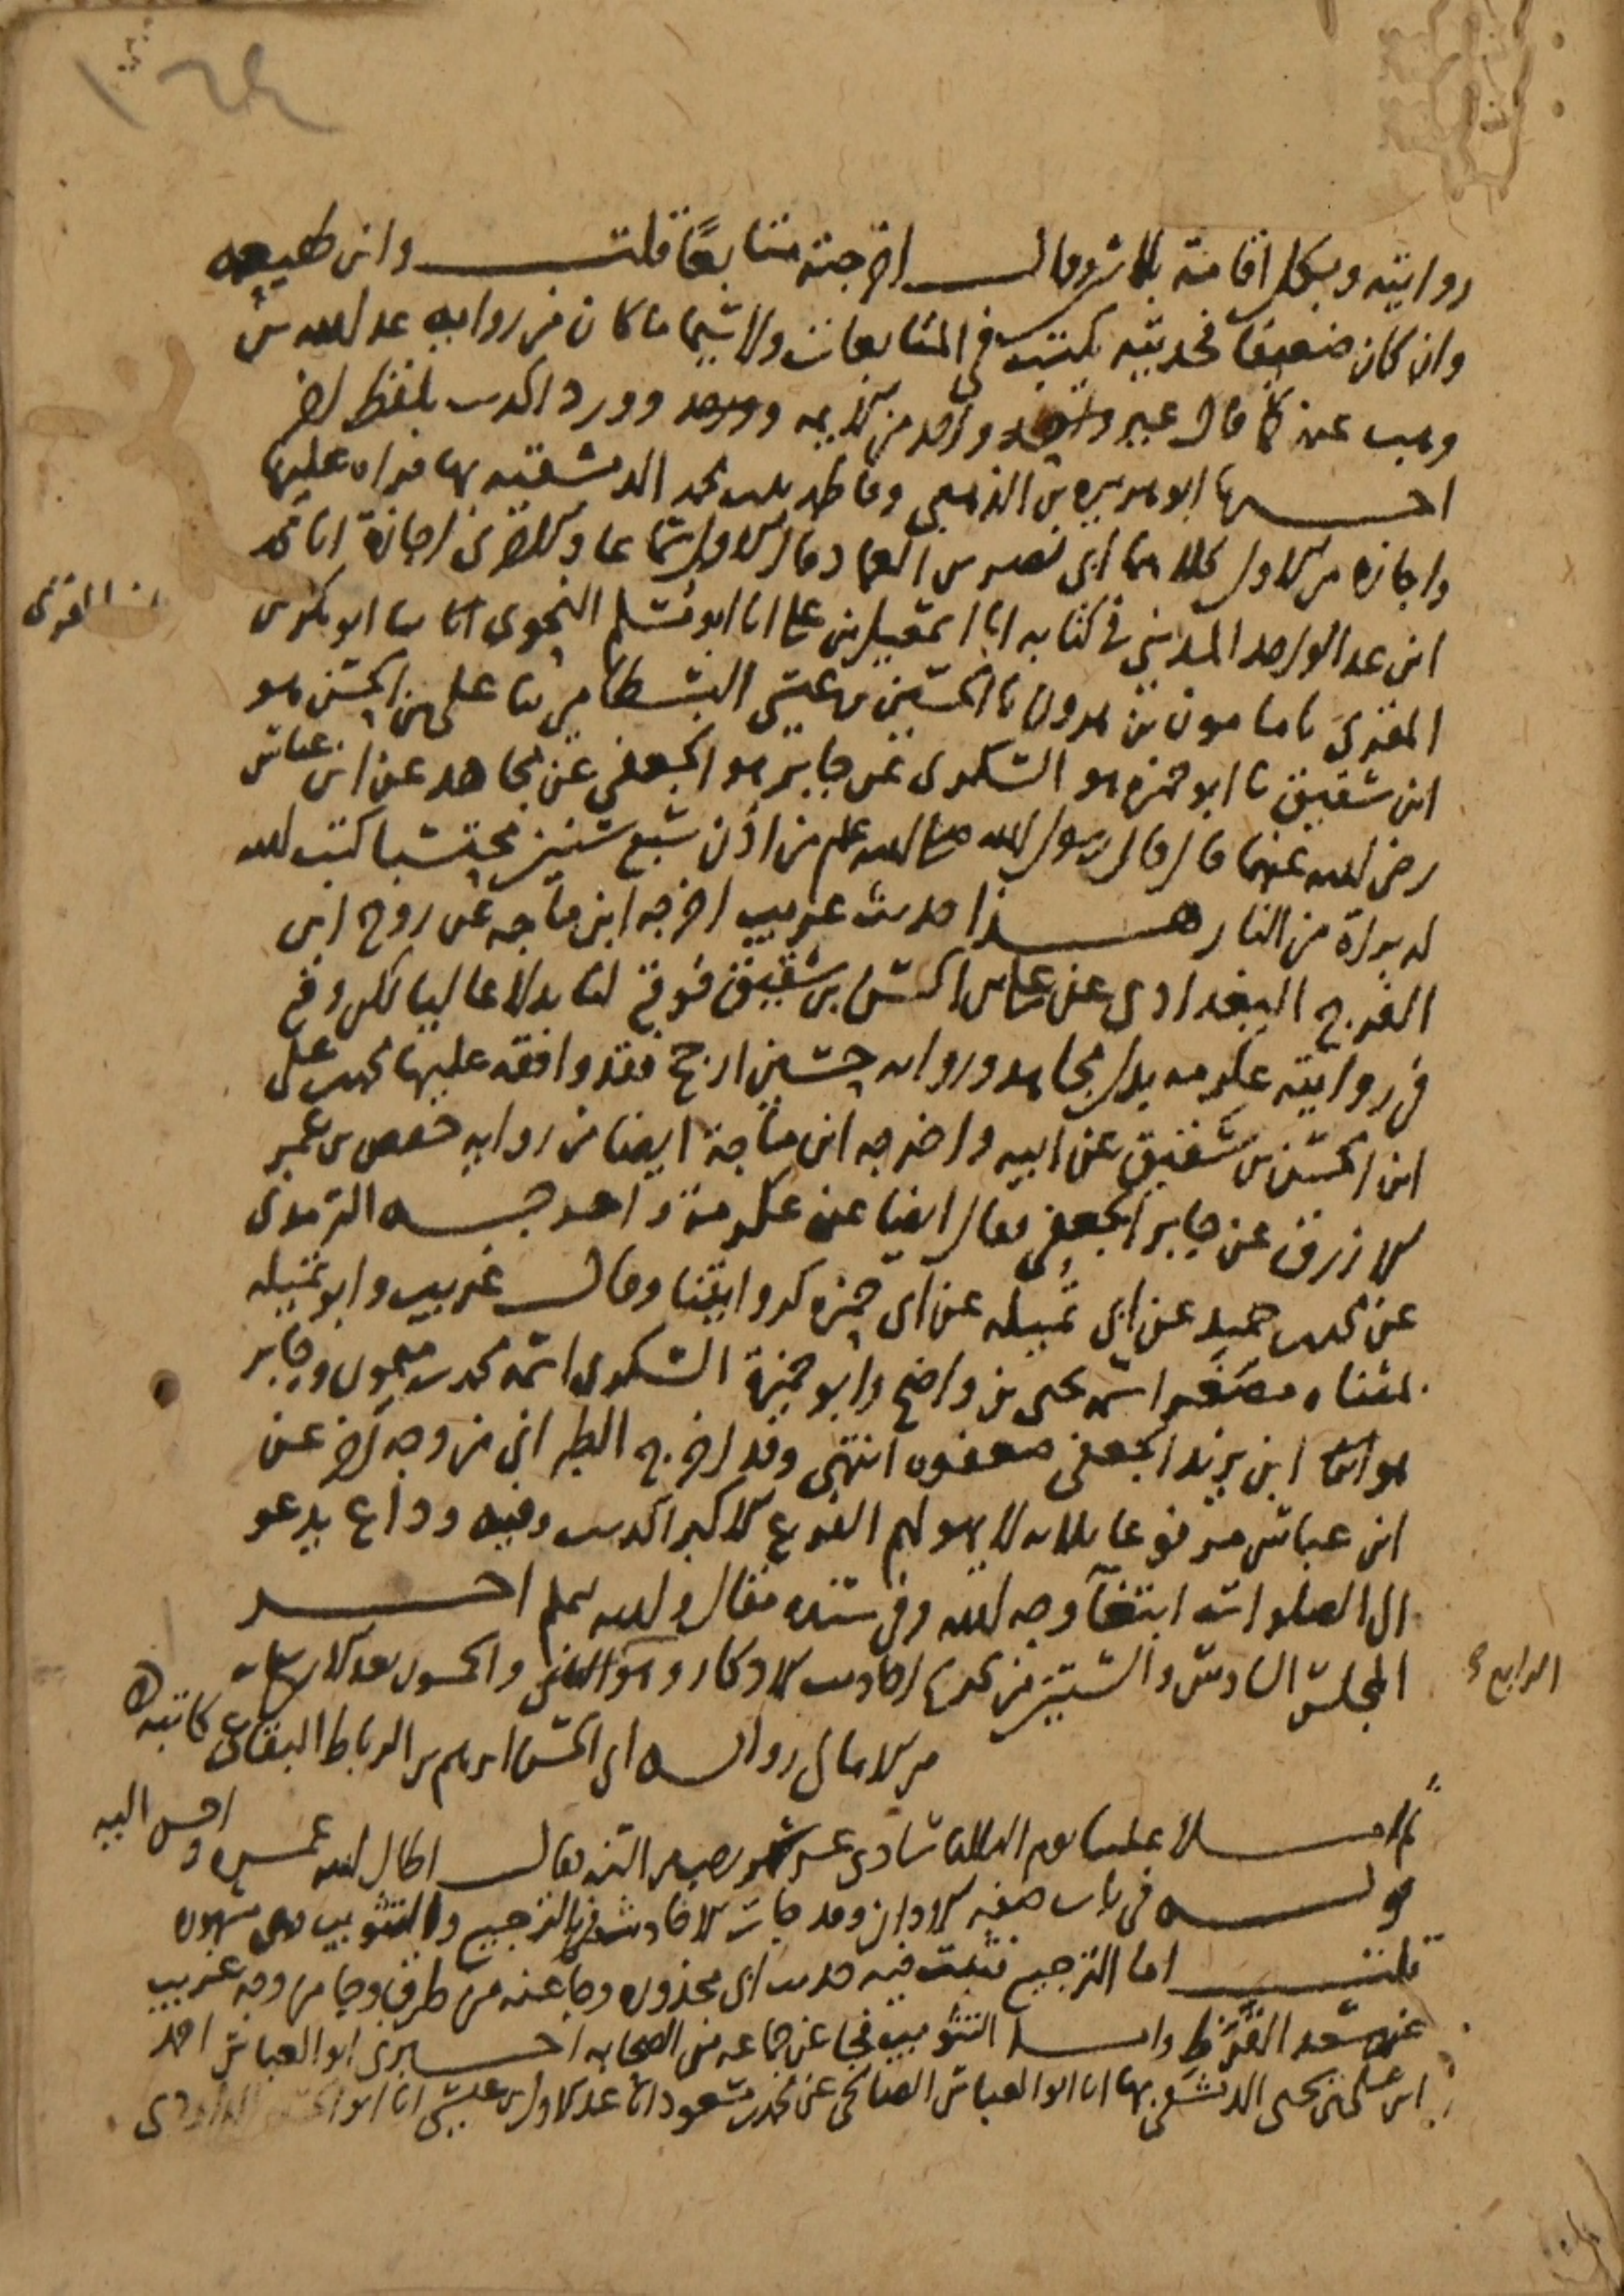 ١٦٤
روايته وبكل اقامة ثلاثون وقال اخرجته متابعا قلت وابن لهيعه
وان كان ضعيفا فحديثه يكتب في المتابعات ولا سيما ما كان من رواية عبد الله بن
وهب عنه كما قال غير واحد من الايمه وورد الحديث بلفظ اخر
اخبرنا ابو هريره بن الذهبي وفاطمه بنت محمد الدمشقيه بها قراه عليها
واجازه من الاول كلاهما عن ابي نصر بن العماد قال الاول سماعا والاخرى اجازة انا محمد
ابن عبد الواحد المديني في كتابه انا اسمعيل بن علي انا ابو مسلم النحوي انا ابو بكر بن
المقرئ نا مامون بن هرون نا الحسين بن عيسى البسطامي نا علي بن الحسن هو
ابن شقيق نا ابو حمزه هو السكري عن جابر هو الجعفي عن مجاهد عن ابن عباس
رضي الله عنهما قال قال رسول الله صلى الله عليه وسلم من اذن سبع سنين محتسبا كتب الله
له براة من النار هذا حديث غريب اخرجه ابن ماجه عن روح ابن
الفرج البغدادي عن علي بن الحسن بن شقيق فوقع لنا بدلا عاليا لكن وقع
في روايته عكرمه بدل مجاهد ورواية حسين ارجح فقد وافقه عليها محمد بن علي
ابن الحسن بن شقيق عن ابيه واخرجه ابن ماجة ايضا من روايه حفص بن عمر
الازرق عن جابر الجعفي فقال ايضا عن عكرمة واخرجه الترمذي
عن محمد بن حميد عن ابي تميله عن ابي حمزه كروايتنا وقال غريب وابو تميله
بمثناه مصغر اسمه يحيى بن واضح وابو حمزة السكري اسمه محمد بن ميمون وجابر
هو ابن يزيد الجعفي ضعفوه انتهى وقد اخرج الطبراني من وجه اخر عن
ابن عباس مرفوعا ثلاثه لا يهولهم الفزع الاكبر الحديث وفيه وداع يدعو
الى الصلوات ابتغآ وجه الله وفي سنده مقال والله اعلم اخر
المجلس السادس والستين من تخريج احاديث الاذكار وهو الثاني والخمسون بعد الاربع مايه
من الامالي رواية ابي الحسن ابرهيم بن الرباط البقاعي كاتبه
ثم املا علينا يوم الثلاثا سادس عشر شهر تاريخه فقال اطال الله عمره واحسن اليه
قوله في باب صفة الاذان وقد جات الاحاديث في الترجيع والتثويب وهي مشهوره
قلت اما الترجيع فثبت فيه حديث ابي محذوره وجا عنه من طرق وجا من وجه غريب
عن سعد القرظ واما التثويب فجا عن جماعه من الصحابه اخبرني ابو العباس احمد
ابن علي بن يحيى الدمشقي بها انا ابو العباس الصالحي عن محمد بن مسعود انا عبد الاول بن عيسى انا ابو الحسن الداودي